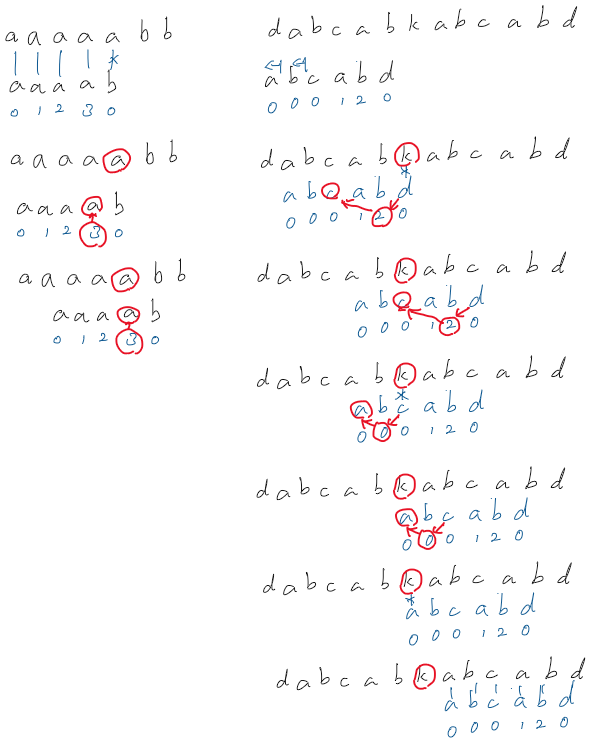 a a a a a b b
| | | | *
a a a a b
0 1 2 3 0
a a a a a b b
a a a a b
0 1 2 3 0
a a a a a b b
a a a a b
0 1 2 3 0
d a b c a b k a b c a b d
a b c a b d
0 0 0 1 2 0
d a b c a b k a b c a b d
*
a b c a b d
0 0 0 1 2 0
d a b c a b k a b c a b d
a b c a b d
0 0 0 1 2 0
d a b c a b k a b c a b d
*
a b c a b d
0 0 0 1 2 0
d a b c a b k a b c a b d
a b c a b d
0 0 0 1 2 0
d a b c a b k a b c a b d
*
a b c a b d
0 0 0 1 2 0
d a b c a b k a b c a b d
| | | | |
a b c a b d
0 0 0 1 2 0